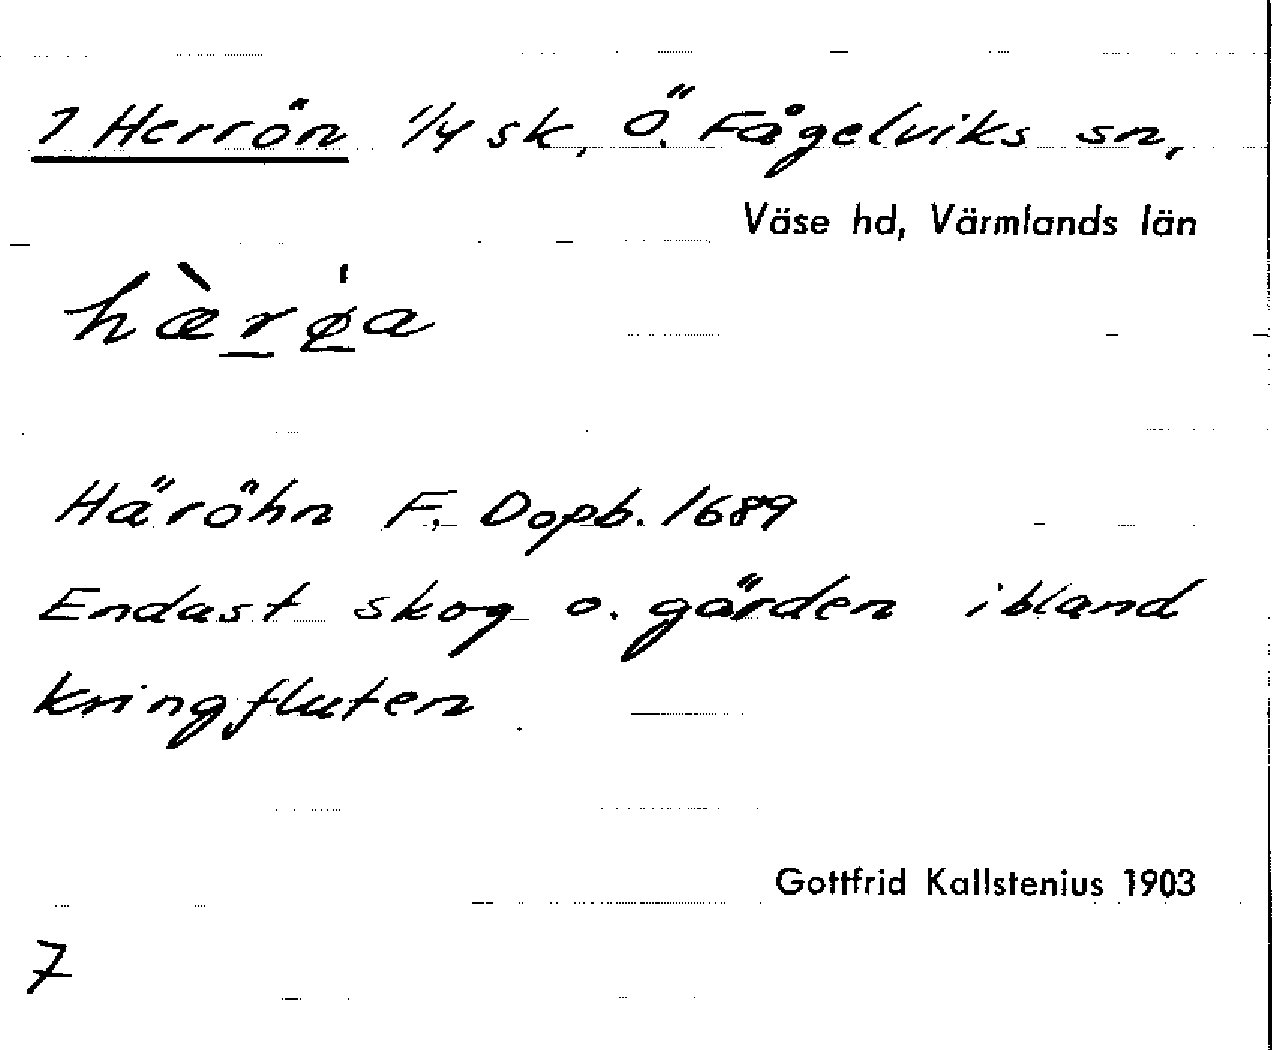 1 Herrön 1/4 sk, Ö. Fågelviks sn,
Väse hd, Värmlands län
hæ̀rø̍a
Häröhn F. Dopb. 1689
Endast skog o. gärden ibland
kringfluten
Gottfrid Kallstenius 1903
7